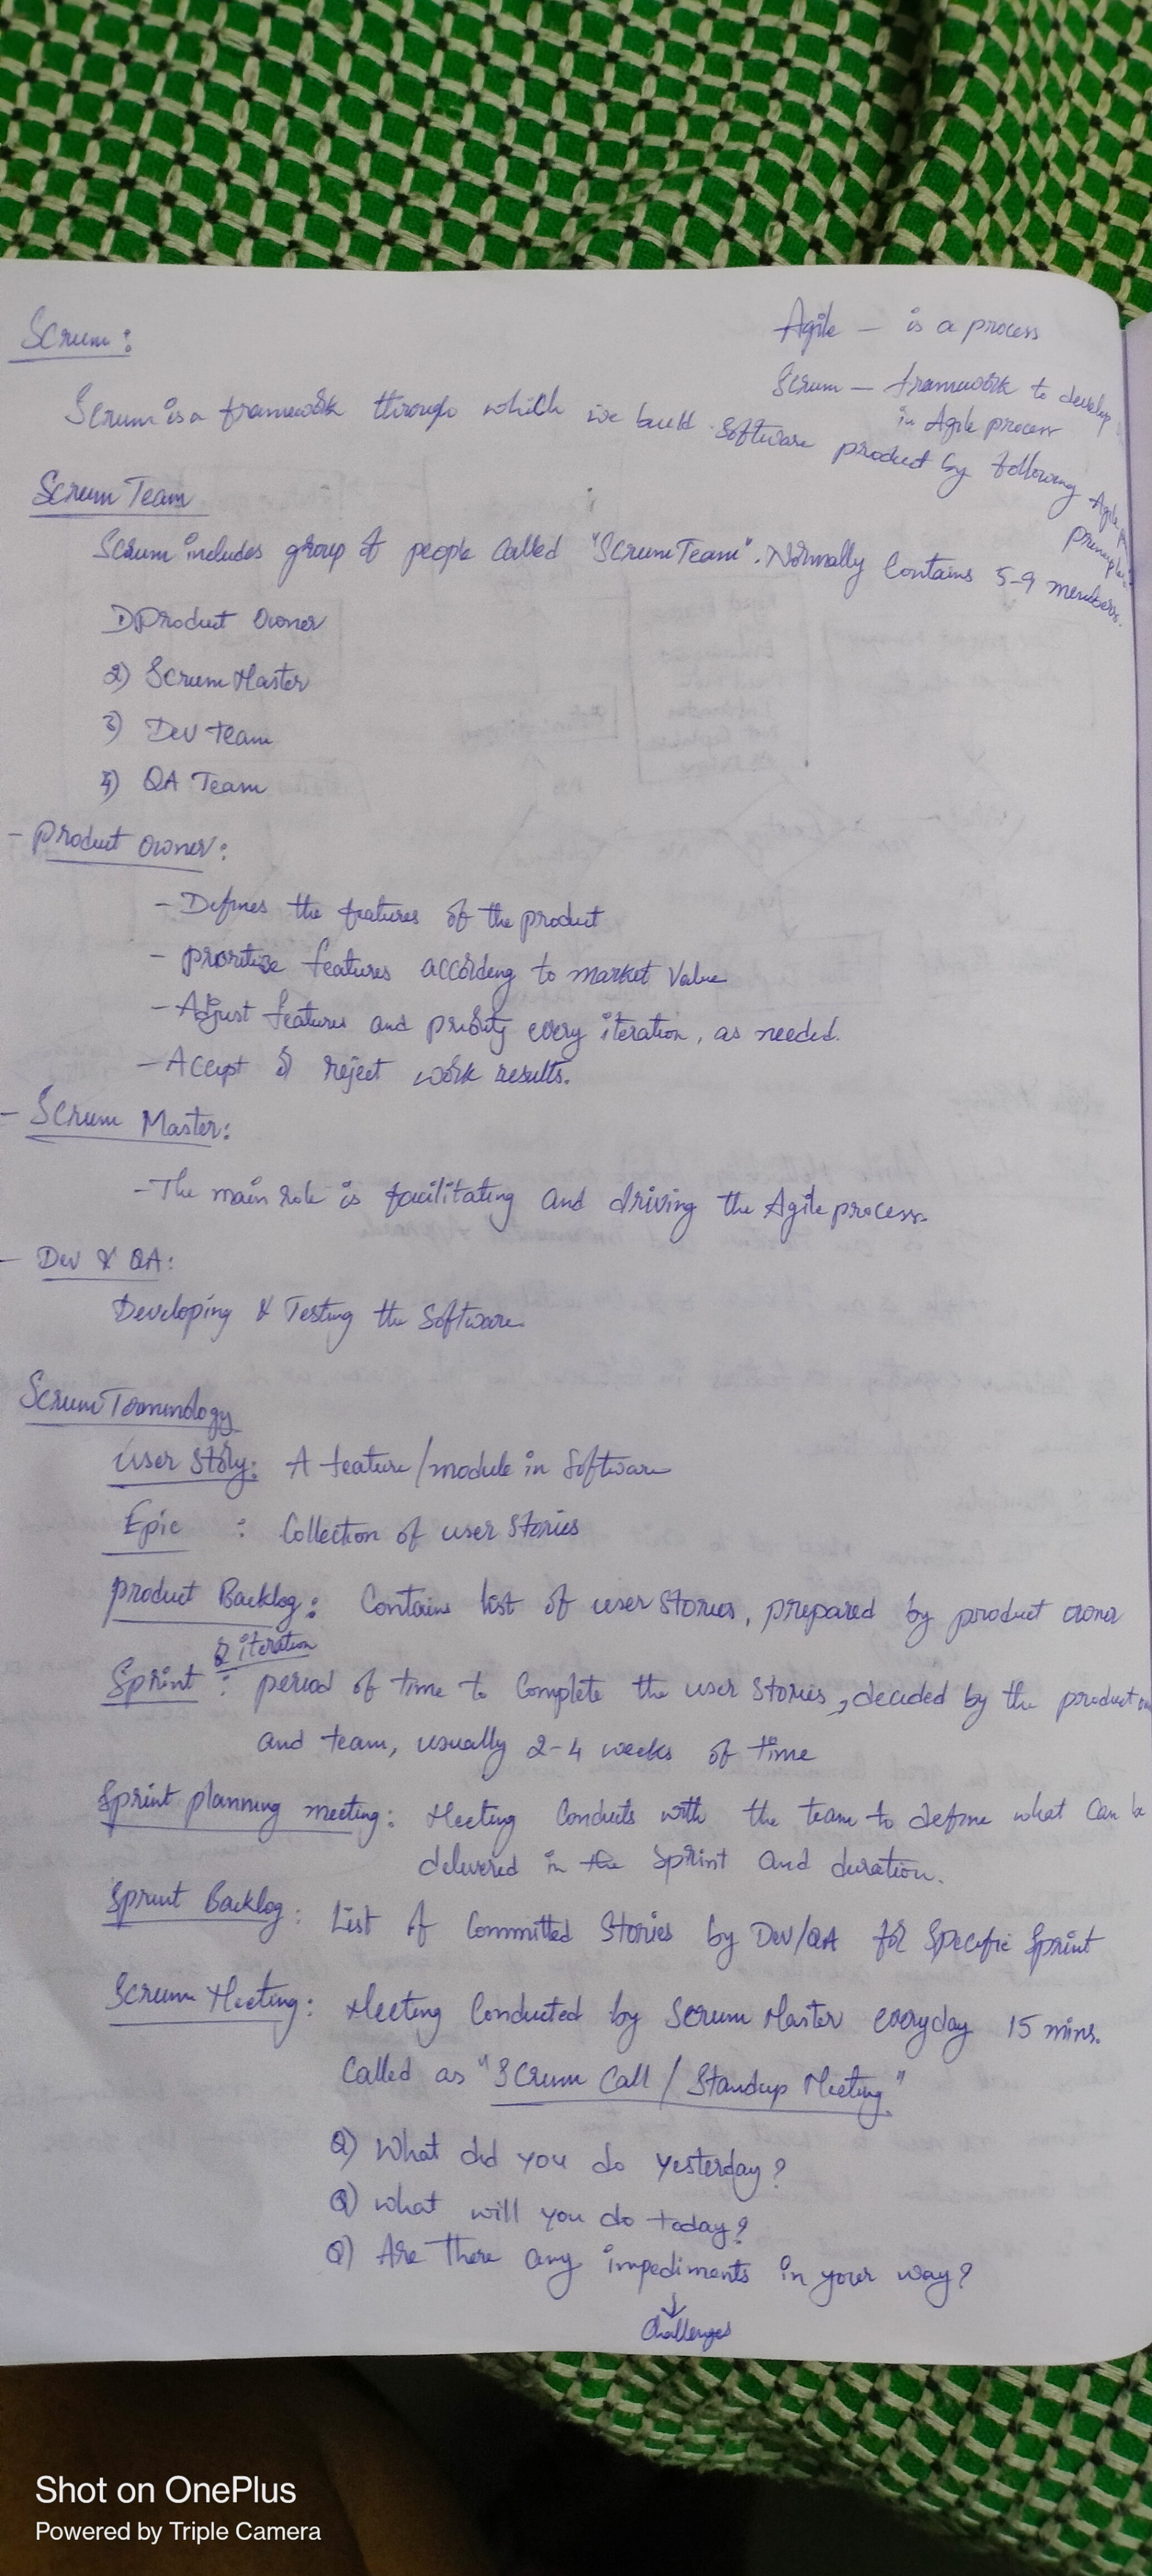 Scrum:
Agile - is a process
Scrum - framework to develop
in Agile process
Scrum is a framework through which we build software product by following Agile principles.
Scrum Team
Scrum includes group of people called "Scrum Team". Normally contains 5-9 members.
1) Product Owner
2) Scrum Master
3) Dev team
4) QA Team
- Product Owner:
- Defines the features of the product
- Prioritize features according to market value
- Adjust features and priority every iteration, as needed.
- Accept or reject work results.
- Scrum Master:
- The main role is facilitating and driving the Agile process.
- Dev & QA:
Developing & Testing the Software.
Scrum Terminology
User Story: A feature/module in Software
Epic : Collection of user stories
Product Backlog: Contains list of user stories, prepared by product owner
or iteration
Sprint : period of time to complete the user stories, decided by the product
and team, usually 2-4 weeks of time
Sprint planning meeting: Meeting conducts with the team to define what can be
delivered in the sprint and duration.
Sprint Backlog: List of committed stories by Dev/QA for specific sprint
Scrum Meeting: Meeting conducted by Scrum Master everyday 15 mins.
Called as "Scrum Call / Standup Meeting"
Q) What did you do yesterday?
Q) what will you do today?
Q) Are there any impediments in your way?
↓
Challenges
Shot on OnePlus
Powered by Triple Camera